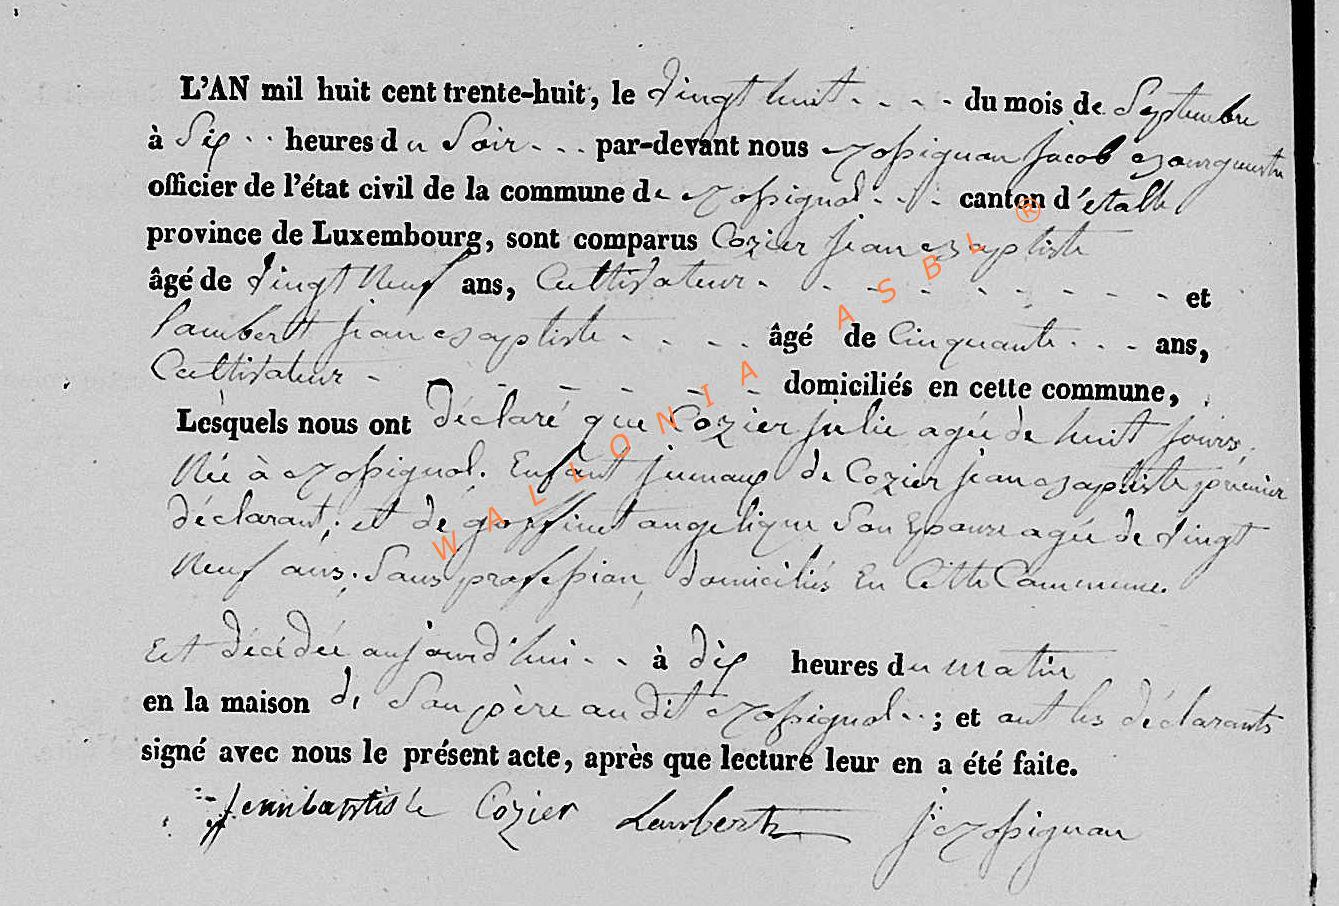 L'AN mil huit cent trente-huit, le vingt huit . . . . du mois de Septembre
à Six . . heures du Soir . . . par-devant nous rossignon jacob bourguestre
officier de l'état civil de la commune de rossignol . . . canton d'étalle
province de Luxembourg, sont comparus Cozier jean baptiste
âgé de vingt Neuf ans, Cultivateur - - - - - - - - - et
Lambert jean baptiste . . . . âgé de Cinquante . . . ans,
Cultivateur - - - - - - domiciliés en cette commune,
Lesquels nous ont déclaré que Cozier julie agée de huit jours,
Née à rossignol. Enfant jumaux de Cozier jean baptiste premier
déclarant, et de goffinet angelique Son Epouse agée de vingt
Neuf ans. Sans profession, domiciliés En Cette Commune.
Est décédée aujourd'hui . . à dix heures du matin
en la maison de Son père au dit rossignol . . ; et ont les déclarants
signé avec nous le présent acte, après que lecture leur en a été faite.
jean baptiste Cozier Lambert j rossignon
WALLONIA ASBL ®